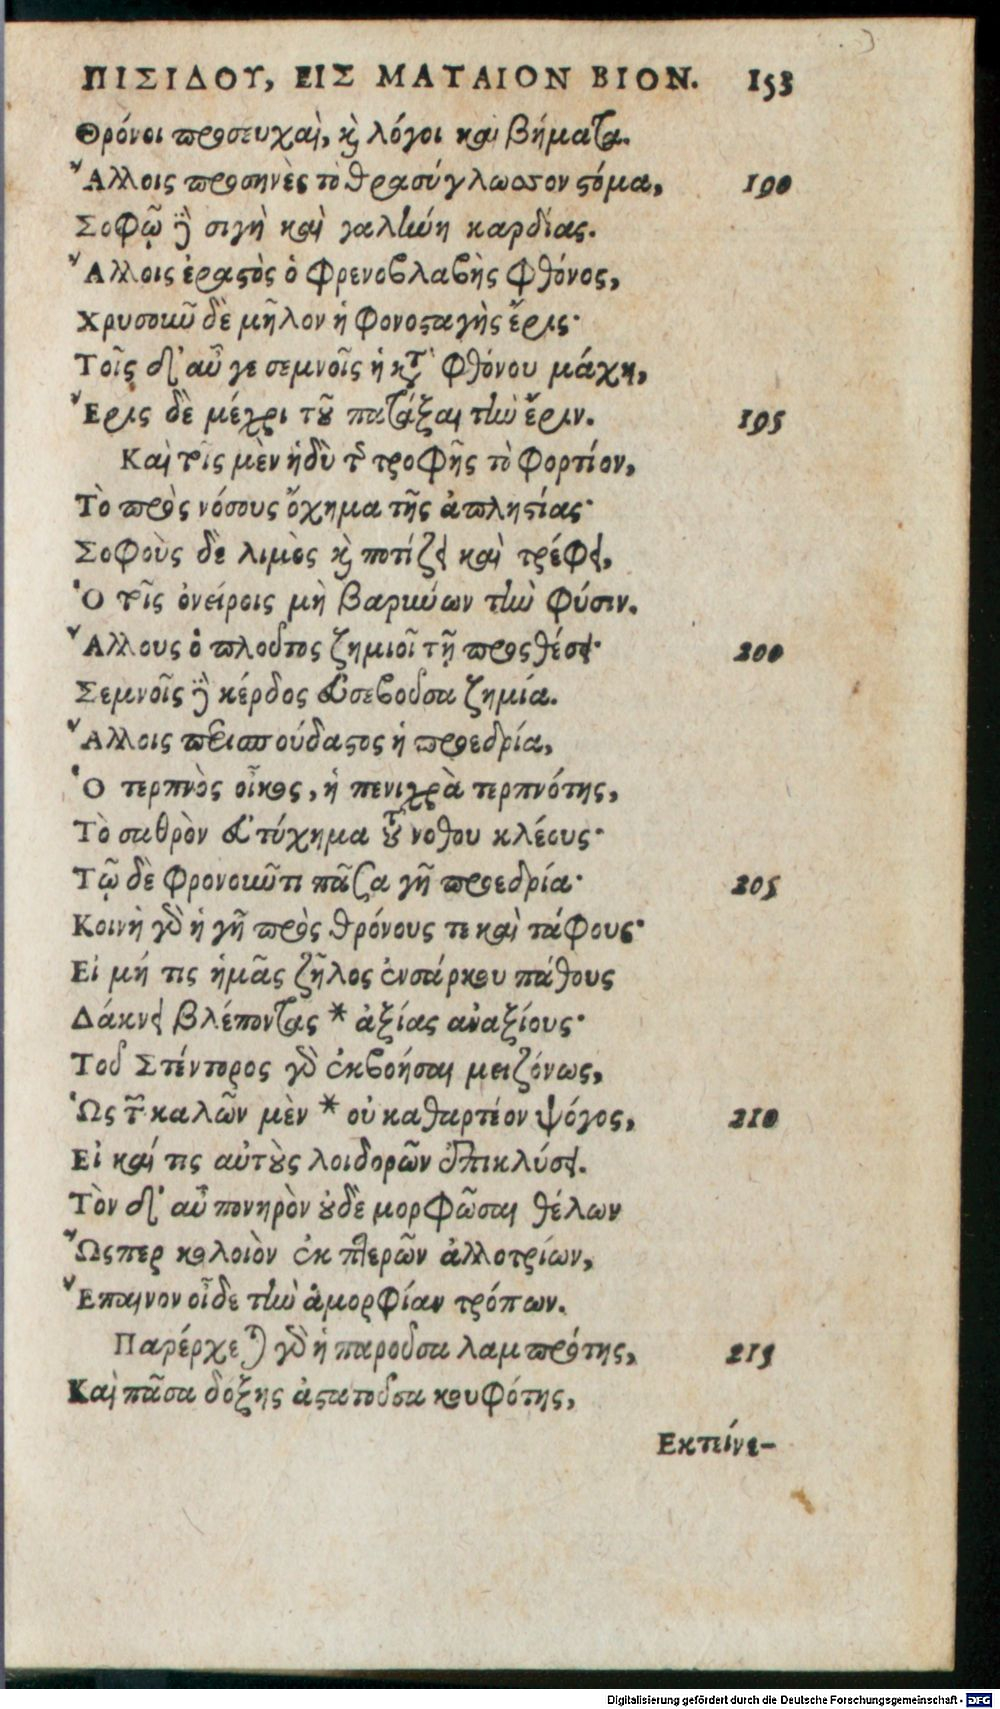 ΠΙΣΙΔΟΥ, ΕΙΣ ΜΑΤΑΙΟΝ ΒΙΟΝ. 153
Θρόνοι προσευχαὶ, καὶ λόγοι καὶ βήματα.
Ἄλλοις προσηνὲς τὸ θρασύγλωσσον στόμα, 190
Σοφῷ δὲ σιγὴ καὶ γαλήνη καρδίας.
Ἄλλοις ἐραστὸς ὁ φρενοβλαβὴς φθόνος,
Χρυσοῦν δὲ μῆλον ἡ φονοσταγὴς ἔρις·
Τοῖς δ' αὖ γε σεμνοῖς ἡ κατὰ φθόνου μάχη,
Ἔρις δὲ μέχρι τοῦ πατάξαι τὴν ἔριν. 195
Καὶ τοῖς μὲν ἡδὺ τῆς τροφῆς τὸ φορτίον,
Τὸ πρὸς νόσους ὄχημα τῆς ἀπληστίας·
Σοφοὺς δὲ λιμὸς καὶ ποτίζει καὶ τρέφει,
Ὁ τοῖς ὀνείροις μὴ βαρύνων τὴν φύσιν.
Ἄλλους ὁ πλοῦτος ζημιοῖ τῇ προσθέσει· 200
Σεμνοῖς δὲ κέρδος εὐσεβοῦσα ζημία.
Ἄλλοις περισπούδαστος ἡ προεδρία,
Ὁ τερπνὸς οἶκος, ἡ πενιχρὰ τερπνότης,
Τὸ σαθρὸν εὐτύχημα τοῦ νόθου κλέους·
Τῷ δὲ φρονοῦντι πᾶσα γῆ προεδρία· 205
Κοινὴ γὰρ ἡ γῆ πρὸς θρόνους τε καὶ τάφους·
Εἰ μή τις ἡμᾶς ζῆλος ἐνσάρκου πάθους
Δάκνει βλέποντας * ἀξίας ἀναξίους·
Τοῦ Στέντορος γὰρ ἐκβοήσαι μειζόνως,
Ὡς τῶν καλῶν μὲν * οὐ καθαρτέον ψόγος, 210
Εἰ καί τις αὐτοὺς λοιδορῶν ἐπικλύσει.
Τὸν δ' αὖ πονηρὸν οὐδὲ μορφῶσαι θέλων
Ὥσπερ κολοιὸν ἐκ πτερῶν ἀλλοτρίων,
Ἔπαινον οἶδε τὴν ἀμορφίαν τρόπων.
Παρέρχεται γὰρ ἡ παροῦσα λαμπρότης, 215
Καὶ πᾶσα δόξης ἀστατοῦσα κουφότης,
Εκτείνε-
Digitalisierung gefördert durch die Deutsche Forschungsgemeinschaft - DFG